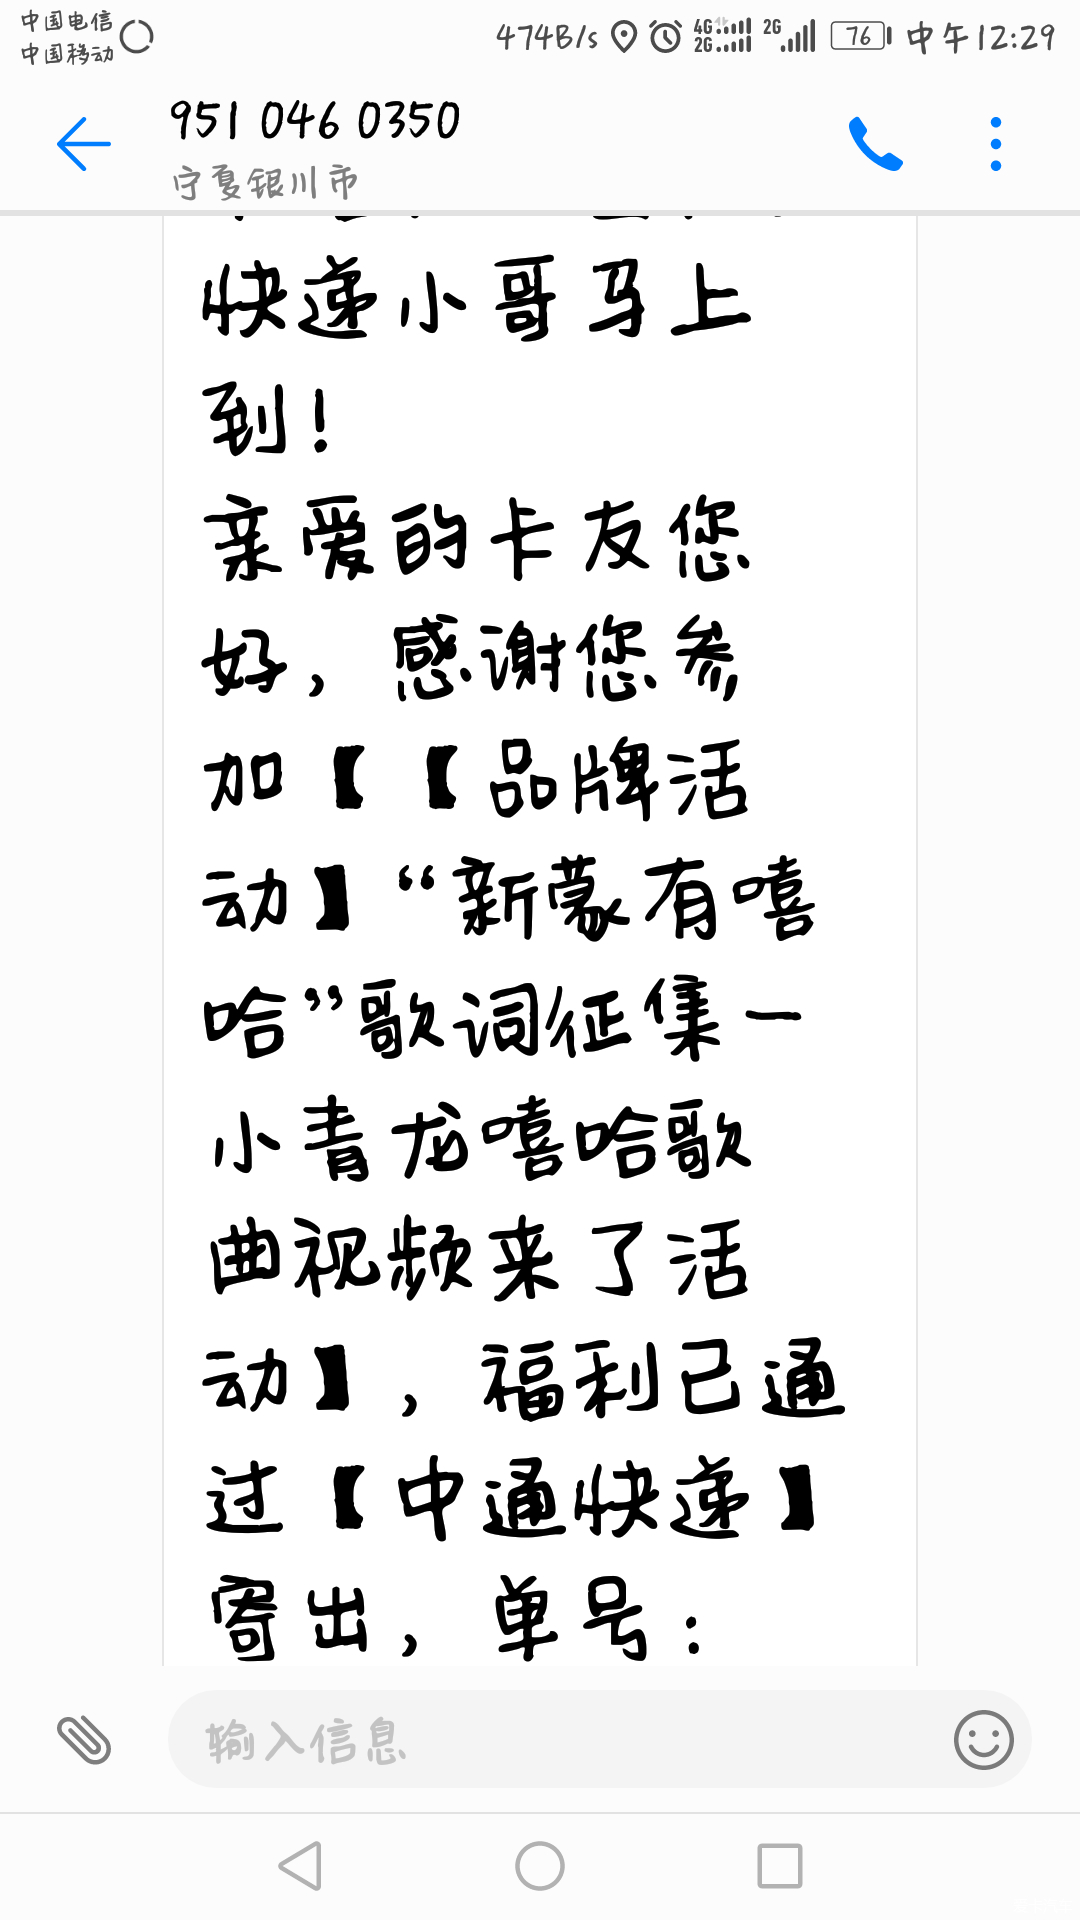 中国电信
中国移动
474B/s 4G 2G 2G 76 中午12:29
951 046 0350
宁夏银川市
快递小哥马上
到!
亲爱的卡友您
好,感谢您参
加【【品牌活
动】“新蒙有嘻
哈”歌词征集一
小青龙嘻哈歌
曲视频来了活
动】,福利已通
过【中通快递】
寄出,单号:
输入信息